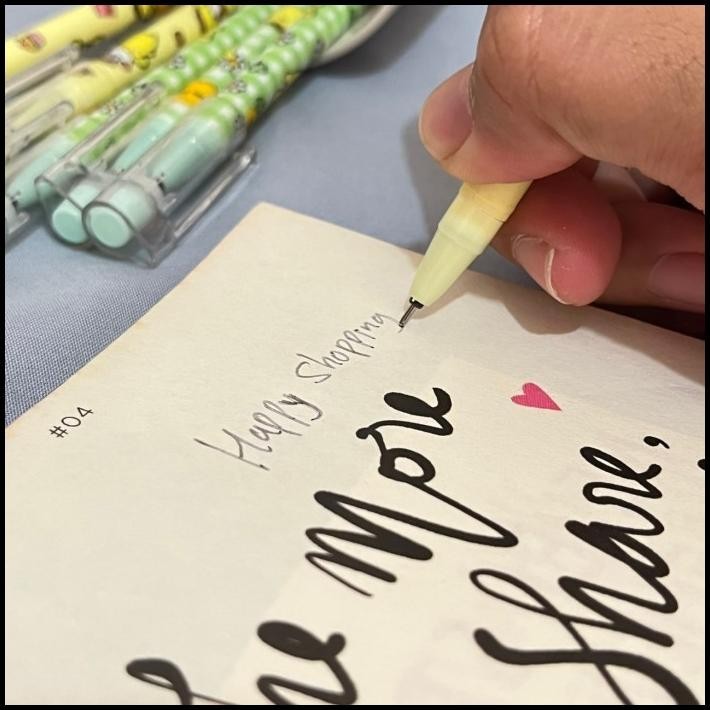 #04
Happy Shopping
The More
Share,